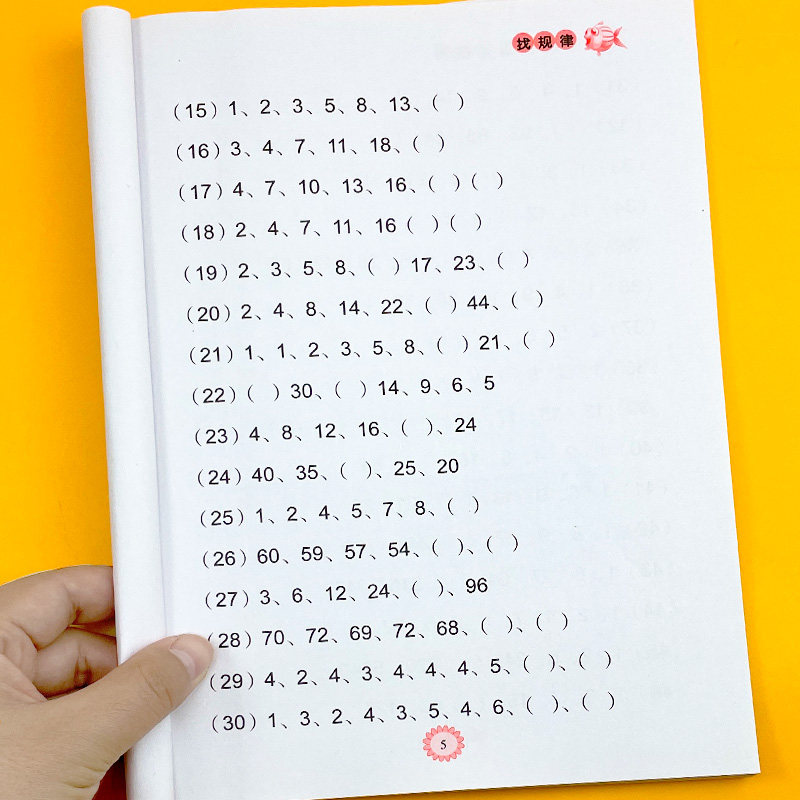 找规律
（15）1、2、3、5、8、13、（ ）
（16）3、4、7、11、18、（ ）
（17）4、7、10、13、16、（ ）（ ）
（18）2、4、7、11、16（ ）（ ）
（19）2、3、5、8、（ ）17、23、（ ）
（20）2、4、8、14、22、（ ）44、（ ）
（21）1、1、2、3、5、8、（ ）21、（ ）
（22）（ ）30、（ ）14、9、6、5
（23）4、8、12、16、（ ）、24
（24）40、35、（ ）、25、20
（25）1、2、4、5、7、8、（ ）
（26）60、59、57、54、（ ）、（ ）
（27）3、6、12、24、（ ）、96
（28）70、72、69、72、68、（ ）、（ ）
（29）4、2、4、3、4、4、4、5、（ ）、（ ）
（30）1、3、2、4、3、5、4、6、（ ）、（ ）
5